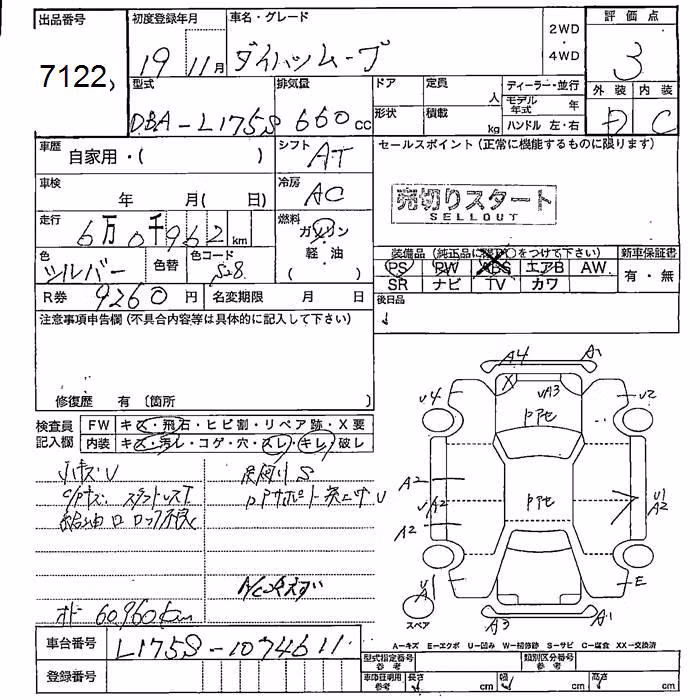 出品番号
7122
初度登録年月
19 11月
車名・グレード
ダイハツムーブ
2WD
・
4WD
評価点
3
外装 内装
D C
型式
DBA-L175S
排気量
660cc
ドア
定員
人
形状
積載
kg
ディーラー・並行
モデル年式 年
ハンドル 左・右
車歴
自家用・( )
シフト
AT
セールスポイント(正常に機能するものに限ります)
売切りスタート
SELLOUT
車検
年 月( 日)
冷房
AC
走行
6万0千962km
燃料
ガソリン
・
軽油
色
シルバー
色替
色コード
S28
装備品
新車保証書
PS PW ABS エアB AW
SR ナビ TV カワ
有・無
R券 9260円 名変期限 月 日
後日品
注意事項申告欄(不具合内容等は具体的に記入して下さい)
修復歴 有〔箇所 〕
検査員記入欄
FW キズ・飛石・ヒビ割・リペア跡・X要
内装 キズ・汚レ・コゲ・穴・スレ・キレ・破レ
小キズU
給油口ロック不良
60,960km
車台番号 L175S-1074611
登録番号
A4 A1
U4 X UA3 U2
A2 U1
A2 A2
U1
A1 E
スペア
A3 A1
A-キズ E-エクボ U-凹み W-補修跡 S-サビ C-腐食 XX-交換済
型式指定番号 参考
類別区分番号 参考
車庫証明用 参考 長さ cm 幅 cm 高さ cm